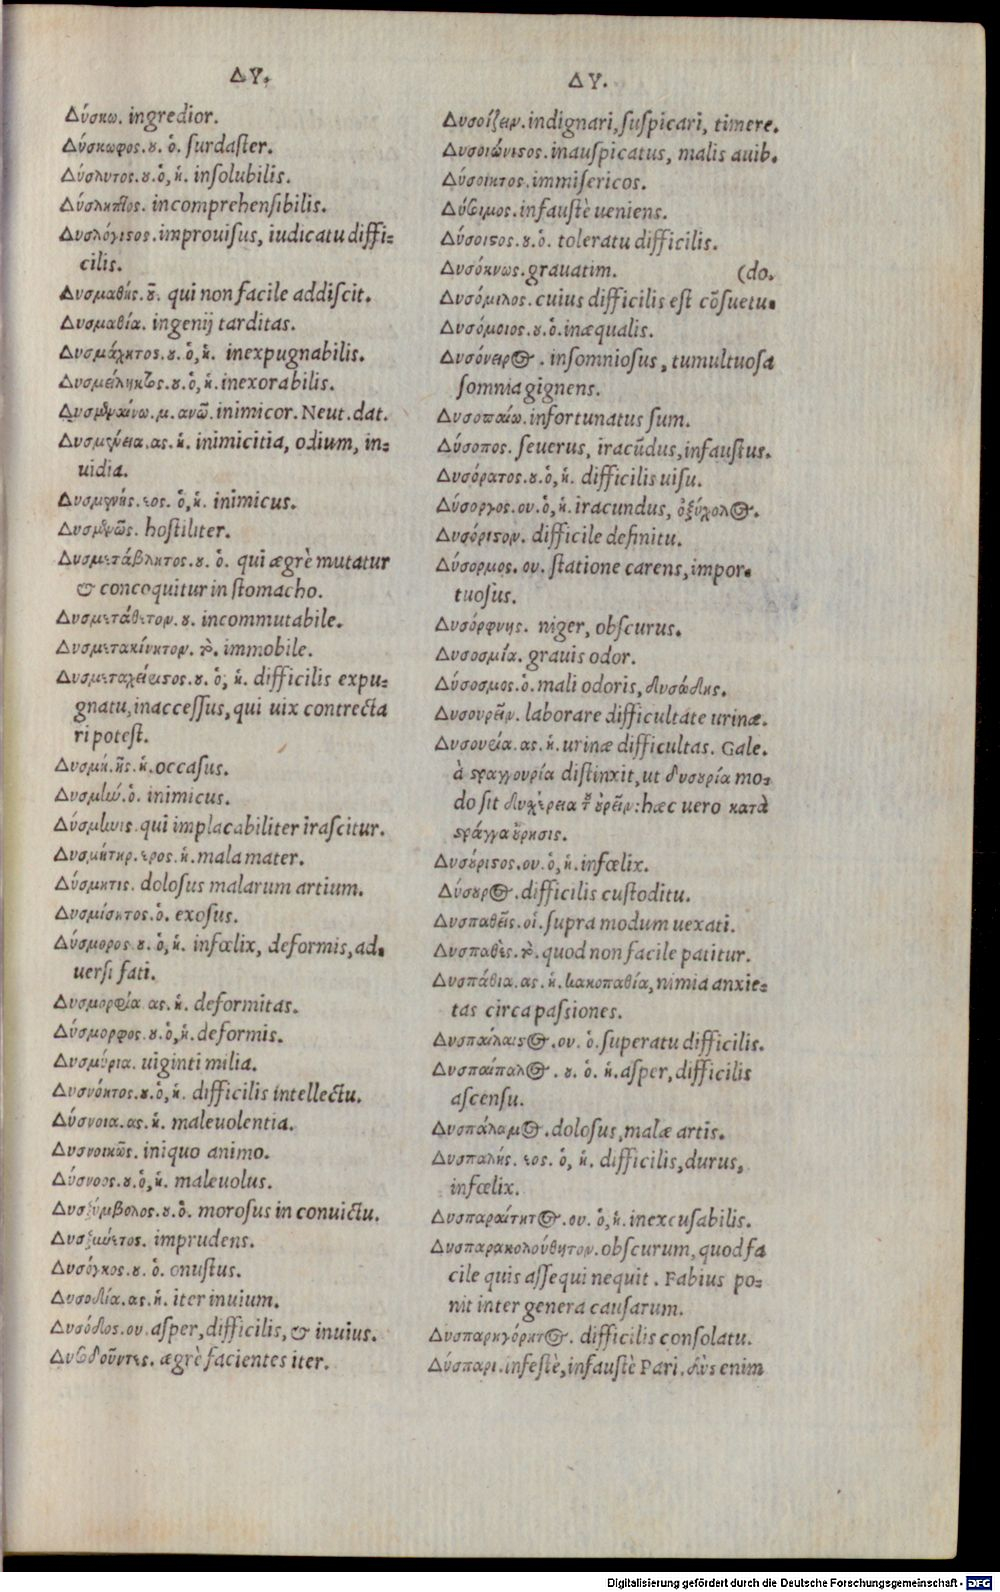 ΔΥ.
Δύσκω. ingredior.
Δύσκωφος.ȣ. ὁ. ſurdaſter.
Δύσλυτος.ȣ.ὁ,ἡ. inſolubilis.
Δύσληπτος. incomprehenſibilis.
Δυσλόγιϛος.improuiſus, iudicatu diffi-
cilis.
Δυσμαθὴς.ȣ͂. qui non facile addiſcit.
Δυσμαθία. ingenij tarditas.
Δυσμάχητος.ȣ.ὁ,ἡ. inexpugnabilis.
Δυσμείληκτος.ȣ.ὁ,ἡ.inexorabilis.
Δυσμεναίνω.μ.ανῶ.inimicor. Neut. dat.
Δυσμένεια.ας.ἡ. inimicitia, odium, in-
uidia.
Δυσμενὴς.εος. ὁ,ἡ. inimicus.
Δυσμενῶς. hoſtiliter.
Δυσμετάβλητος.ȣ. ὁ. qui ægrè mutatur
& concoquitur in ſtomacho.
Δυσμετάθετον.ȣ. incommutabile.
Δυσμετακίνητον. τὸ. immobile.
Δυσμεταχείριϛος.ȣ. ὁ, ἡ. difficilis expu-
gnatu,inacceſſus,qui uix contrecta
ri poteſt.
Δυσμὴ.ῆς.ἡ.occaſus.
Δυσμὴν.ὁ. inimicus.
Δύσμηνις.qui implacabiliter iraſcitur.
Δυσμήτηρ.ερος.ἡ.mala mater.
Δύσμητις. doloſus malarum artium.
Δυσμίσητος.ὁ. exoſus.
Δύσμορος.ȣ. ὁ,ἡ. infœlix, deformis, ad-
uerſi fati.
Δυσμορφία.ας.ἡ.deformitas.
Δύσμορφος.ȣ.ὁ,ἡ.deformis.
Δυσμύρια. uiginti milia.
Δυσνόητος.ȣ.ὁ,ἡ. difficilis intellectu.
Δύσνοια.ας.ἡ. maleuolentia.
Δυσνοικῶς. iniquo animo.
Δύσνοος.ȣ.ὁ,ἡ. maleuolus.
Δυσξύμβολος.ȣ.ὁ. moroſus in conuictu.
Δυσξύνετος. imprudens.
Δυσόγκος.ȣ. ὁ. onuſtus.
Δυσοδία.ας.ἡ. iter inuium.
Δυσόδιος.ου. aſper,difficilis,& inuius.
Δυσοδοῦντες. ægrè facientes iter.
ΔΥ.
Δυσοίζειν.indignari,ſuſpicari, timere.
Δυσοιώνιϛος.inauſpicatus, malis auib.
Δυσοίκτος.immiſericos.
Δύσοιμος.infauſtè ueniens.
Δύσοιϛος.ȣ.ὁ. toleratu difficilis.
Δυσόκνως.grauatim. (do.
Δυσόμιλος. cuius difficilis eſt cōſuetu-
Δυσόμοιος.ȣ.ὁ.inæqualis.
Δυσόνειρος. inſomnioſus, tumultuoſa
ſomnia gignens.
Δυσοπαίω.infortunatus ſum.
Δύσοπος. ſeuerus, iracūdus,infauſtus.
Δυσόρατος.ȣ.ὁ,ἡ. difficilis uiſu.
Δύσοργος.ου.ὁ,ἡ.iracundus, ὀξύχολος.
Δυσόριϛον. difficile definitu.
Δύσορμος. ου. ſtatione carens, impor-
tuoſus.
Δυσόρφνης. niger, obſcurus.
Δυσοσμία. grauis odor.
Δύσοσμος.ὁ.mali odoris, δυσώδης.
Δυσουρεῖν. laborare difficultate urinæ.
Δυσουεία.ας.ἡ.urinæ difficultas. Gale.
à ϛραγγουρία diſtinxit,ut δυσουρία mo-
do ſit δυχέρεια τ ȣρεῖν:hæc uero κατὰ
ϛράγγα ȣ̓ρησις.
Δυσȣ́ριϛος.ου.ὁ,ἡ.infœlix.
Δύσȣρος.difficilis cuſtoditu.
Δυσπαθεῖς.οἱ.ſupra modum uexati.
Δυσπαθὲς.τὸ.quod non facile patitur.
Δυσπάθια.ας.ἡ.κακοπαθία,nimia anxie-
tas circa paſsiones.
Δυσπάλαιϛος.ου. ὁ.ſuperatu difficilis.
Δυσπαίπαλος. ȣ. ὁ. ἡ.aſper,difficilis
aſcenſu.
Δυσπάλαμος.doloſus,malæ artis.
Δυσπαλὴς. εος. ὁ, ἡ. difficilis,durus,
infœlix.
Δυσπαραίτητος.ου. ὁ,ἡ.inexcuſabilis.
Δυσπαρακολούθητον.obſcurum,quod fa
cile quis aſſequi nequit. Fabius po-
nit inter genera cauſarum.
Δυσπαρηγόρητος. difficilis conſolatu.
Δύσπαρι.infeſtè,infauſtè Pari. δὺς enim
Digitalisierung gefördert durch die Deutsche Forschungsgemeinschaft - DFG